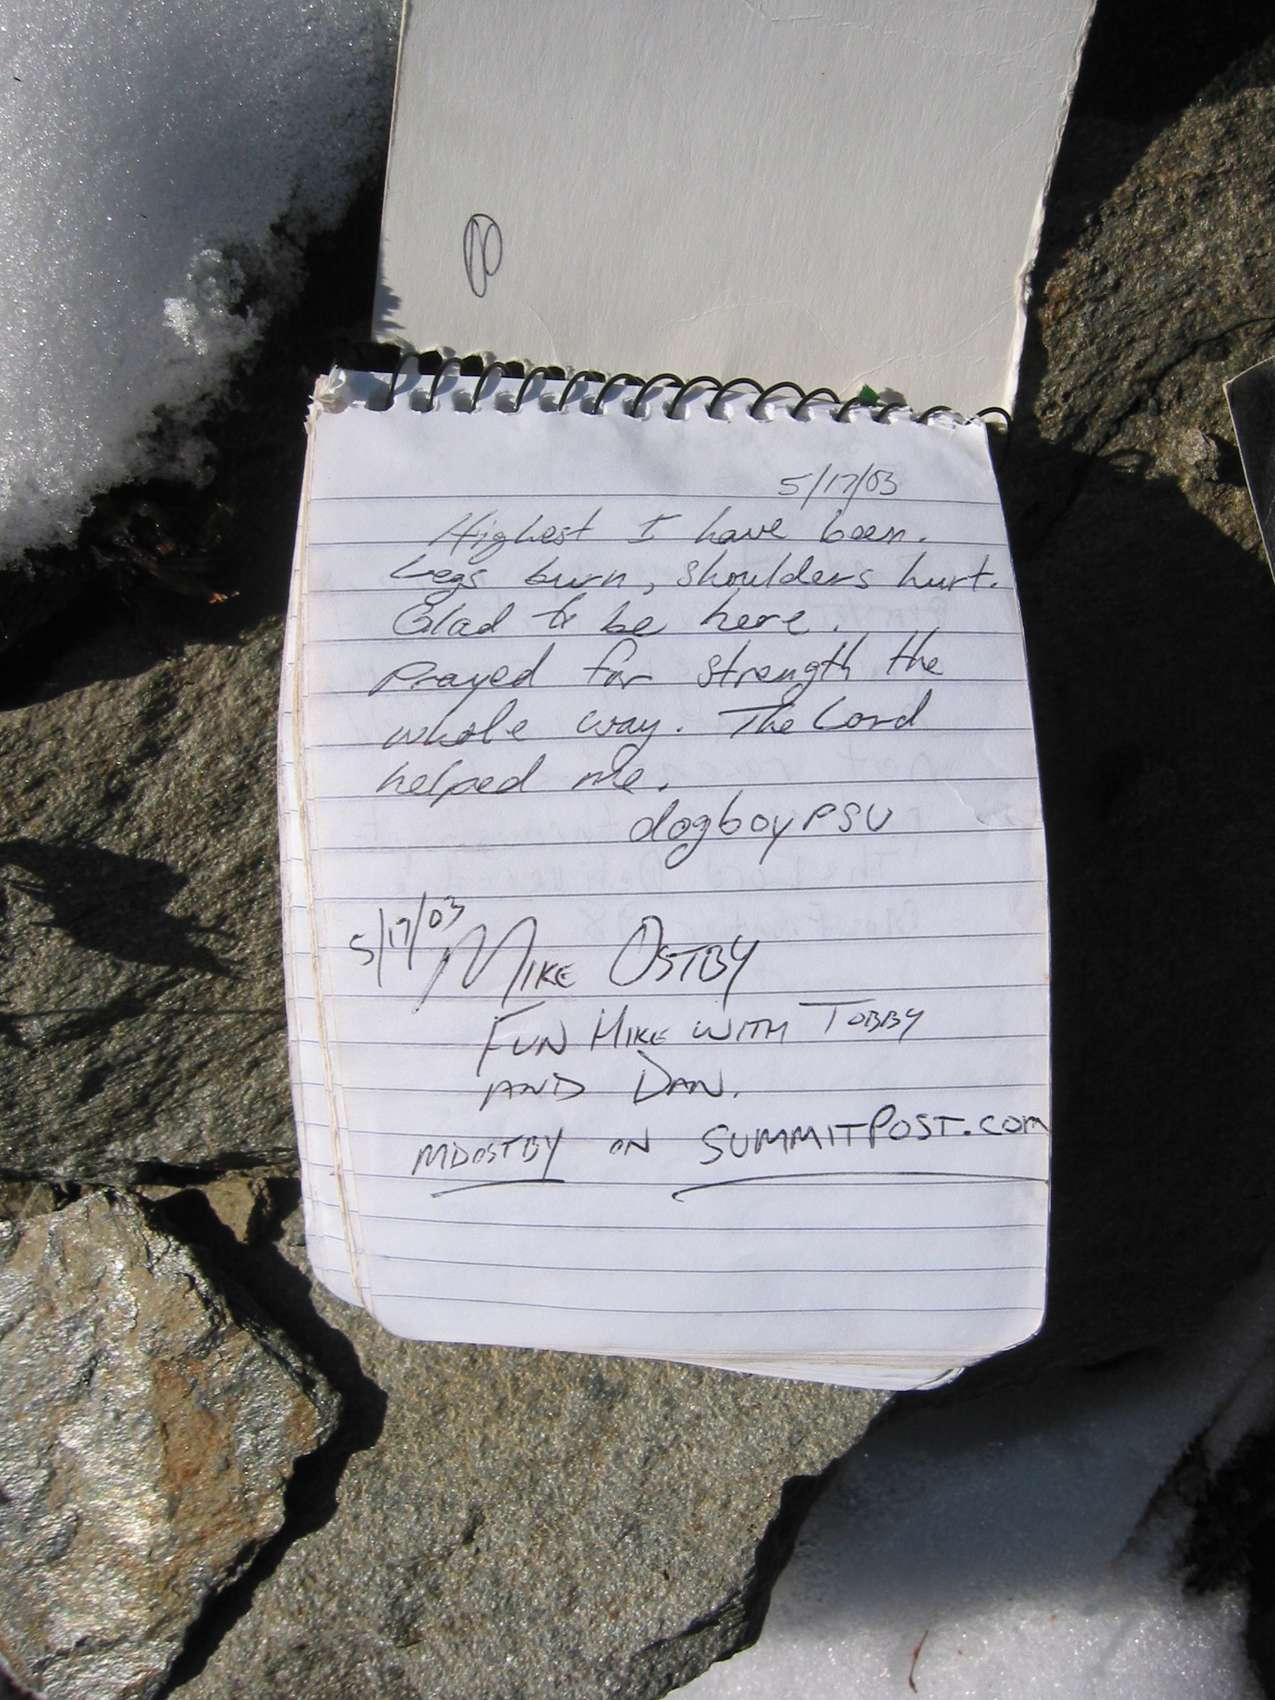 5/17/03
Highest I have been.
Legs burn, shoulders hurt.
Glad to be here.
Prayed for strength the
whole way. The Lord
helped me.
dogboyPSU
5/17/03 MIKE OSTBY
FUN HIKE WITH TOBBY
AND DAN.
MDOSTBY ON SUMMITPOST.COM